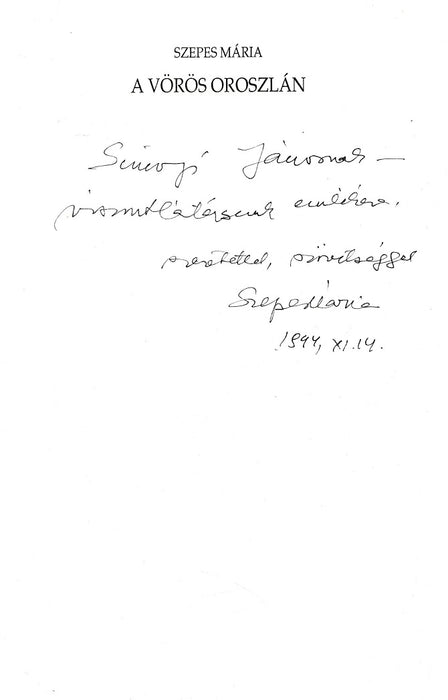 SZEPES MÁRIA
A VÖRÖS OROSZLÁN
Jánosnak –
viszontlátásunk emlékére,
szeretettel, szövetséggel
Szepes Mária
1994, XI. 14.